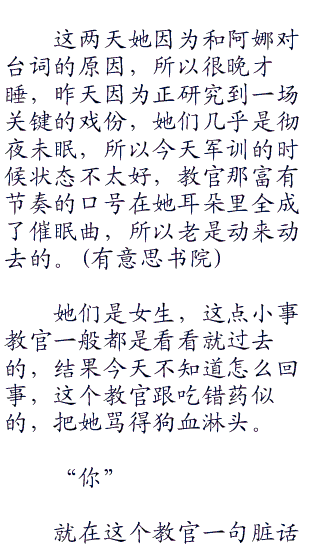 这两天她因为和阿娜对
台词的原因，所以很晚才
睡，昨天因为正研究到一场
关键的戏份，她们几乎是彻
夜未眠，所以今天军训的时
候状态不太好，教官那富有
节奏的口号在她耳朵里全成
了催眠曲，所以老是动来动
去的。(有意思书院)
她们是女生，这点小事
教官一般都是看看就过去
的，结果今天不知道怎么回
事，这个教官跟吃错药似
的，把她骂得狗血淋头。
“你”
就在这个教官一句脏话